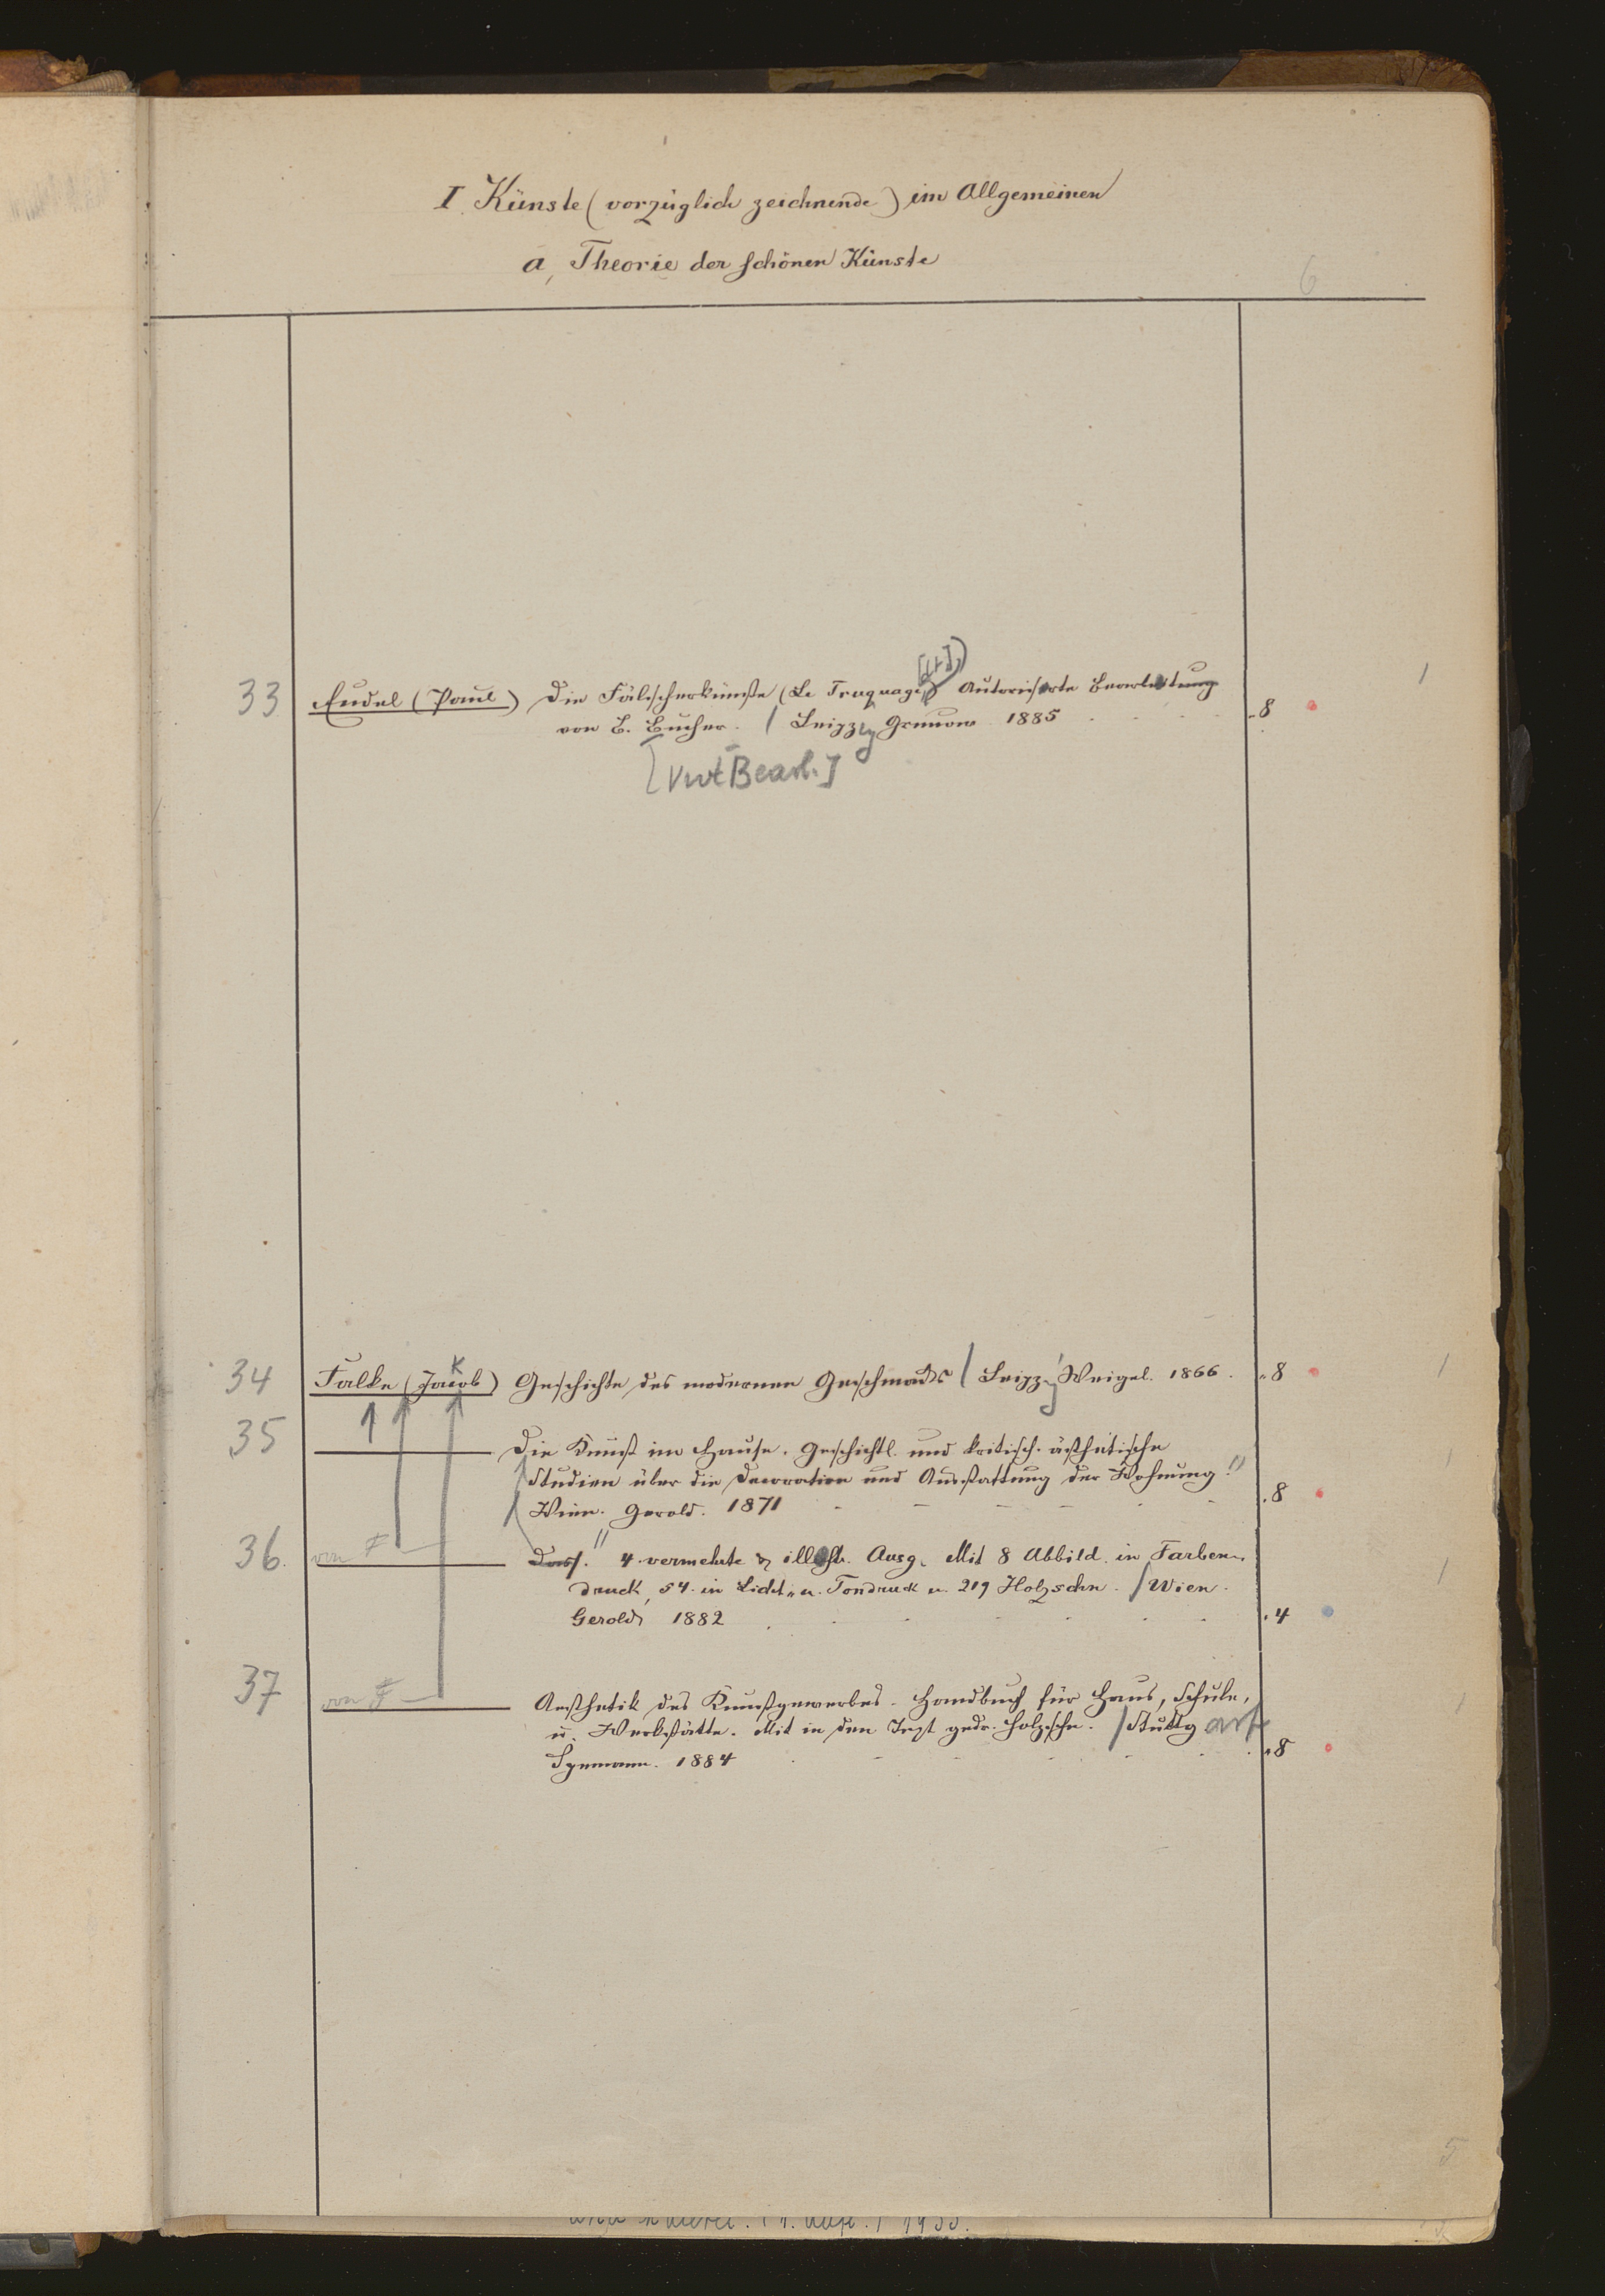 I. Künste (vorzüglich zeichnende) im Allgemeinen
a, Theorie der schönen Künste
6
33 Eudel (Paul) Die Fälscherkünste (Le Truquage) Autorisirte Bearbeitung 1
von B. Bucher. / Leipzig Grunow 1885 . 8
[Bearb.]
34 Falke (Jakob) Geschichte des modernen Geschmacks / Leipzig Weigel. 1866 . 8 1
35 Die Kunst im Hause. Geschichtl. und kritisch-ästhetische 1
Studien über die Decoration und Ausstattung der Wohnung."
Wien. Gerold. 1871 . 8
36. von F Dass." 4. vermehrte & illustr. Ausg. Mit 8 Abbild. in Farben- 1
druck, 54. in Licht- u. Tondruck u. 219 Holzschn. / Wien.
Gerold, 1882 . 4
37 von F Aesthetik des Kunstgewerbes. Handbuch für Haus, Schule, 1
u. Werkstätte. Mit in den Text gedr. Holzschn. / Stuttgart
Spemann. 1884 . 8
5